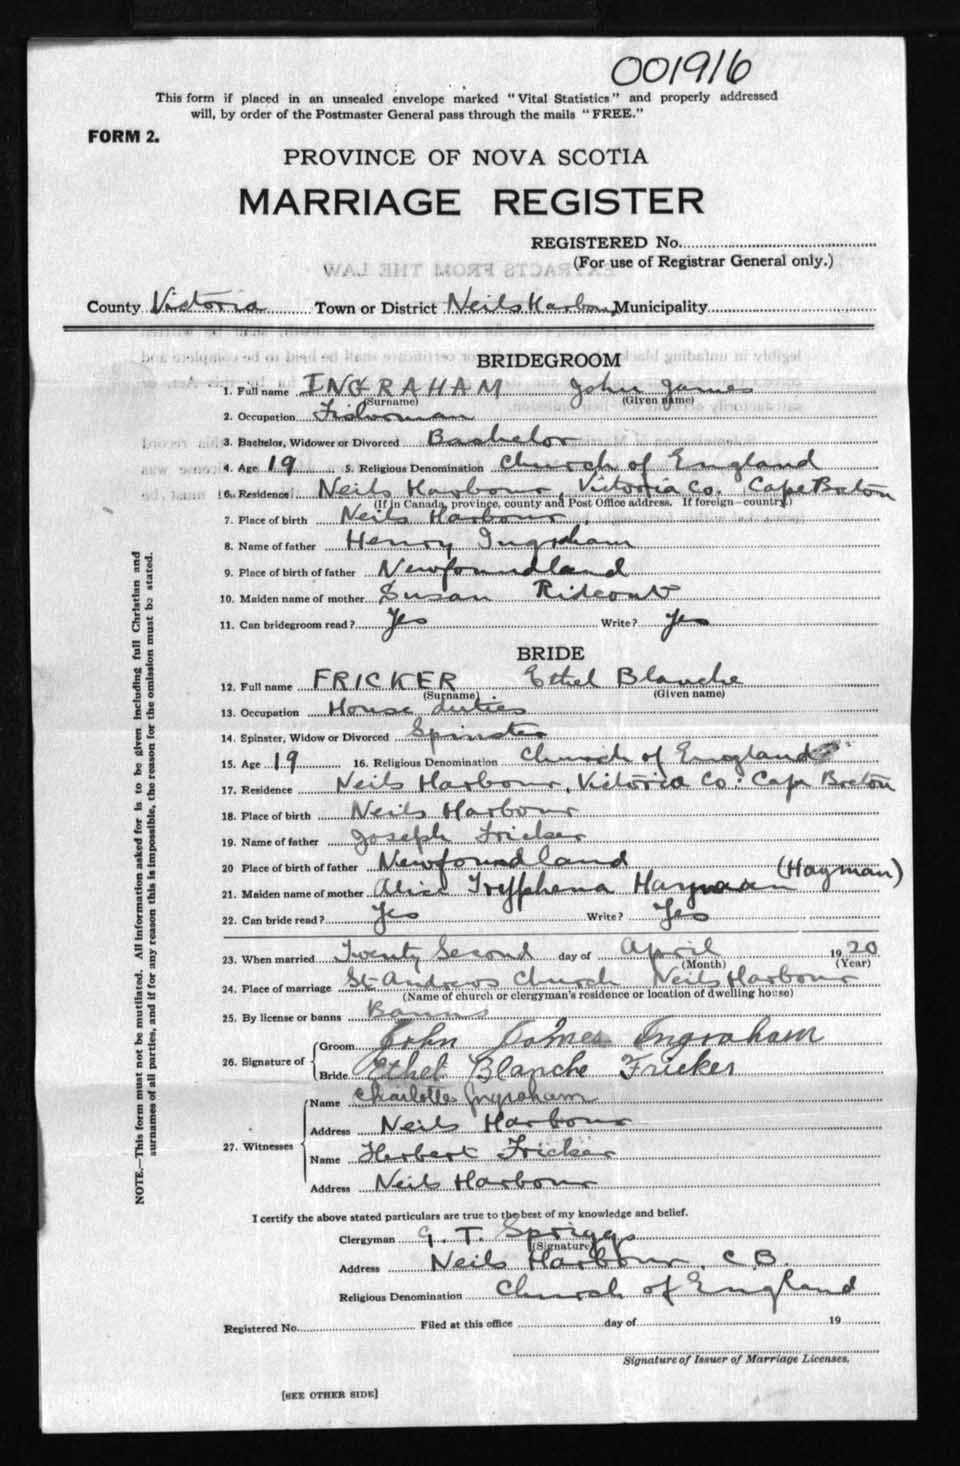 001916
This form if placed in an unsealed envelope marked "Vital Statistics" and properly addressed
will, by order of the Postmaster General pass through the mails "FREE."
FORM 2.
PROVINCE OF NOVA SCOTIA
MARRIAGE REGISTER
REGISTERED No.
(For use of Registrar General only.)
County Victoria Town or District Neils Harbour Municipality
BRIDEGROOM
1. Full name INGRAHAM John James
(Surname) (Given name)
2. Occupation Fisherman
3. Bachelor, Widower or Divorced Bachelor
4. Age 19 5. Religious Denomination Church of England
6. Residence Neils Harbour, Victoria Co. Cape Breton
(If in Canada, province, county and Post Office address. If foreign—country.)
7. Place of birth Neils Harbour
8. Name of father Henry Ingraham
9. Place of birth of father Newfoundland
10. Maiden name of mother Susan Rideout
11. Can bridegroom read? Yes Write? Yes
BRIDE
12. Full name FRICKER Ethel Blanche
(Surname) (Given name)
13. Occupation House duties
14. Spinster, Widow or Divorced Spinster
15. Age 19 16. Religious Denomination Church of England
17. Residence Neils Harbour, Victoria Co: Cape Breton
18. Place of birth Neils Harbour
19. Name of father Joseph Fricker
20 Place of birth of father Newfoundland
21. Maiden name of mother Alice Tryphena Hayman (Hayman)
22. Can bride read? Yes Write? Yes
23. When married Twenty Second day of April 1920
(Month) (Year)
24. Place of marriage St Andrews Church Neils Harbour
(Name of church or clergyman's residence or location of dwelling house)
25. By license or banns Banns
26. Signature of Groom John James Ingraham
Bride Ethel Blanche Fricker
27. Witnesses Name Charlotte Ingraham
Address Neils Harbour
Name Herbert Fricker
Address Neils Harbour
I certify the above stated particulars are true to the best of my knowledge and belief.
Clergyman G. T. Spriggs
(Signature)
Address Neils Harbour, C.B.
Religious Denomination Church of England
Registered No. Filed at this office day of 19
Signature of Issuer of Marriage Licenses.
[SEE OTHER SIDE]
NOTE.—This form must not be mutilated. All information asked for is to be given including full Christian and
surnames of all parties, and if for any reason this is impossible, the reason for the omission must be stated.